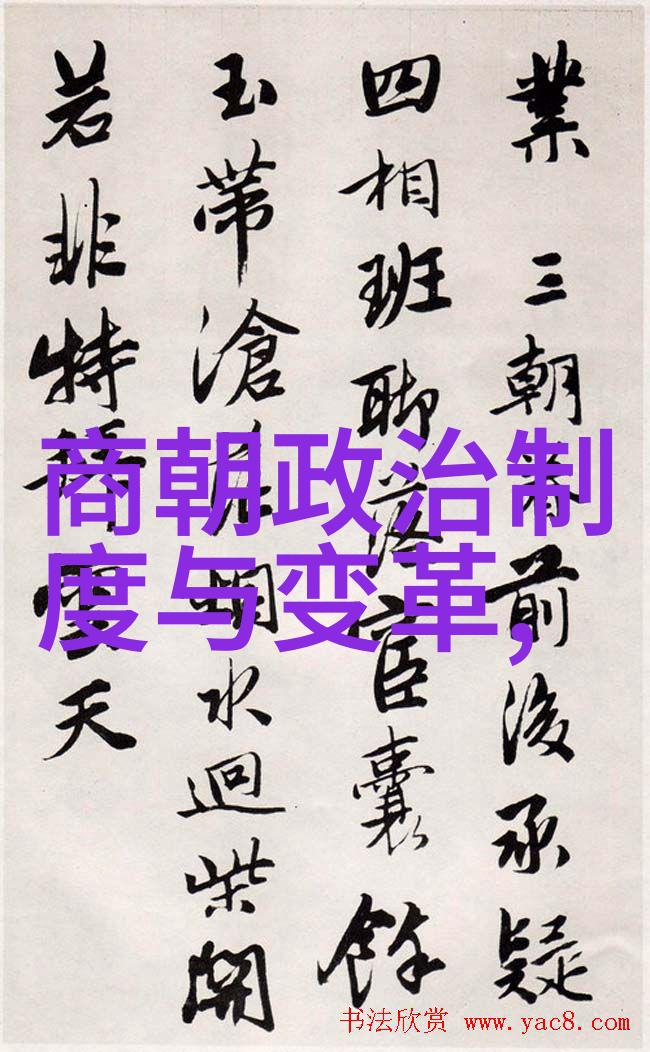 業 三朝前後承疑
四相班聊宦囊餘
玉帶滄水迴柴開
若非特雪天
商朝政治制
度与变革,
书法欣赏 www.yac8.com